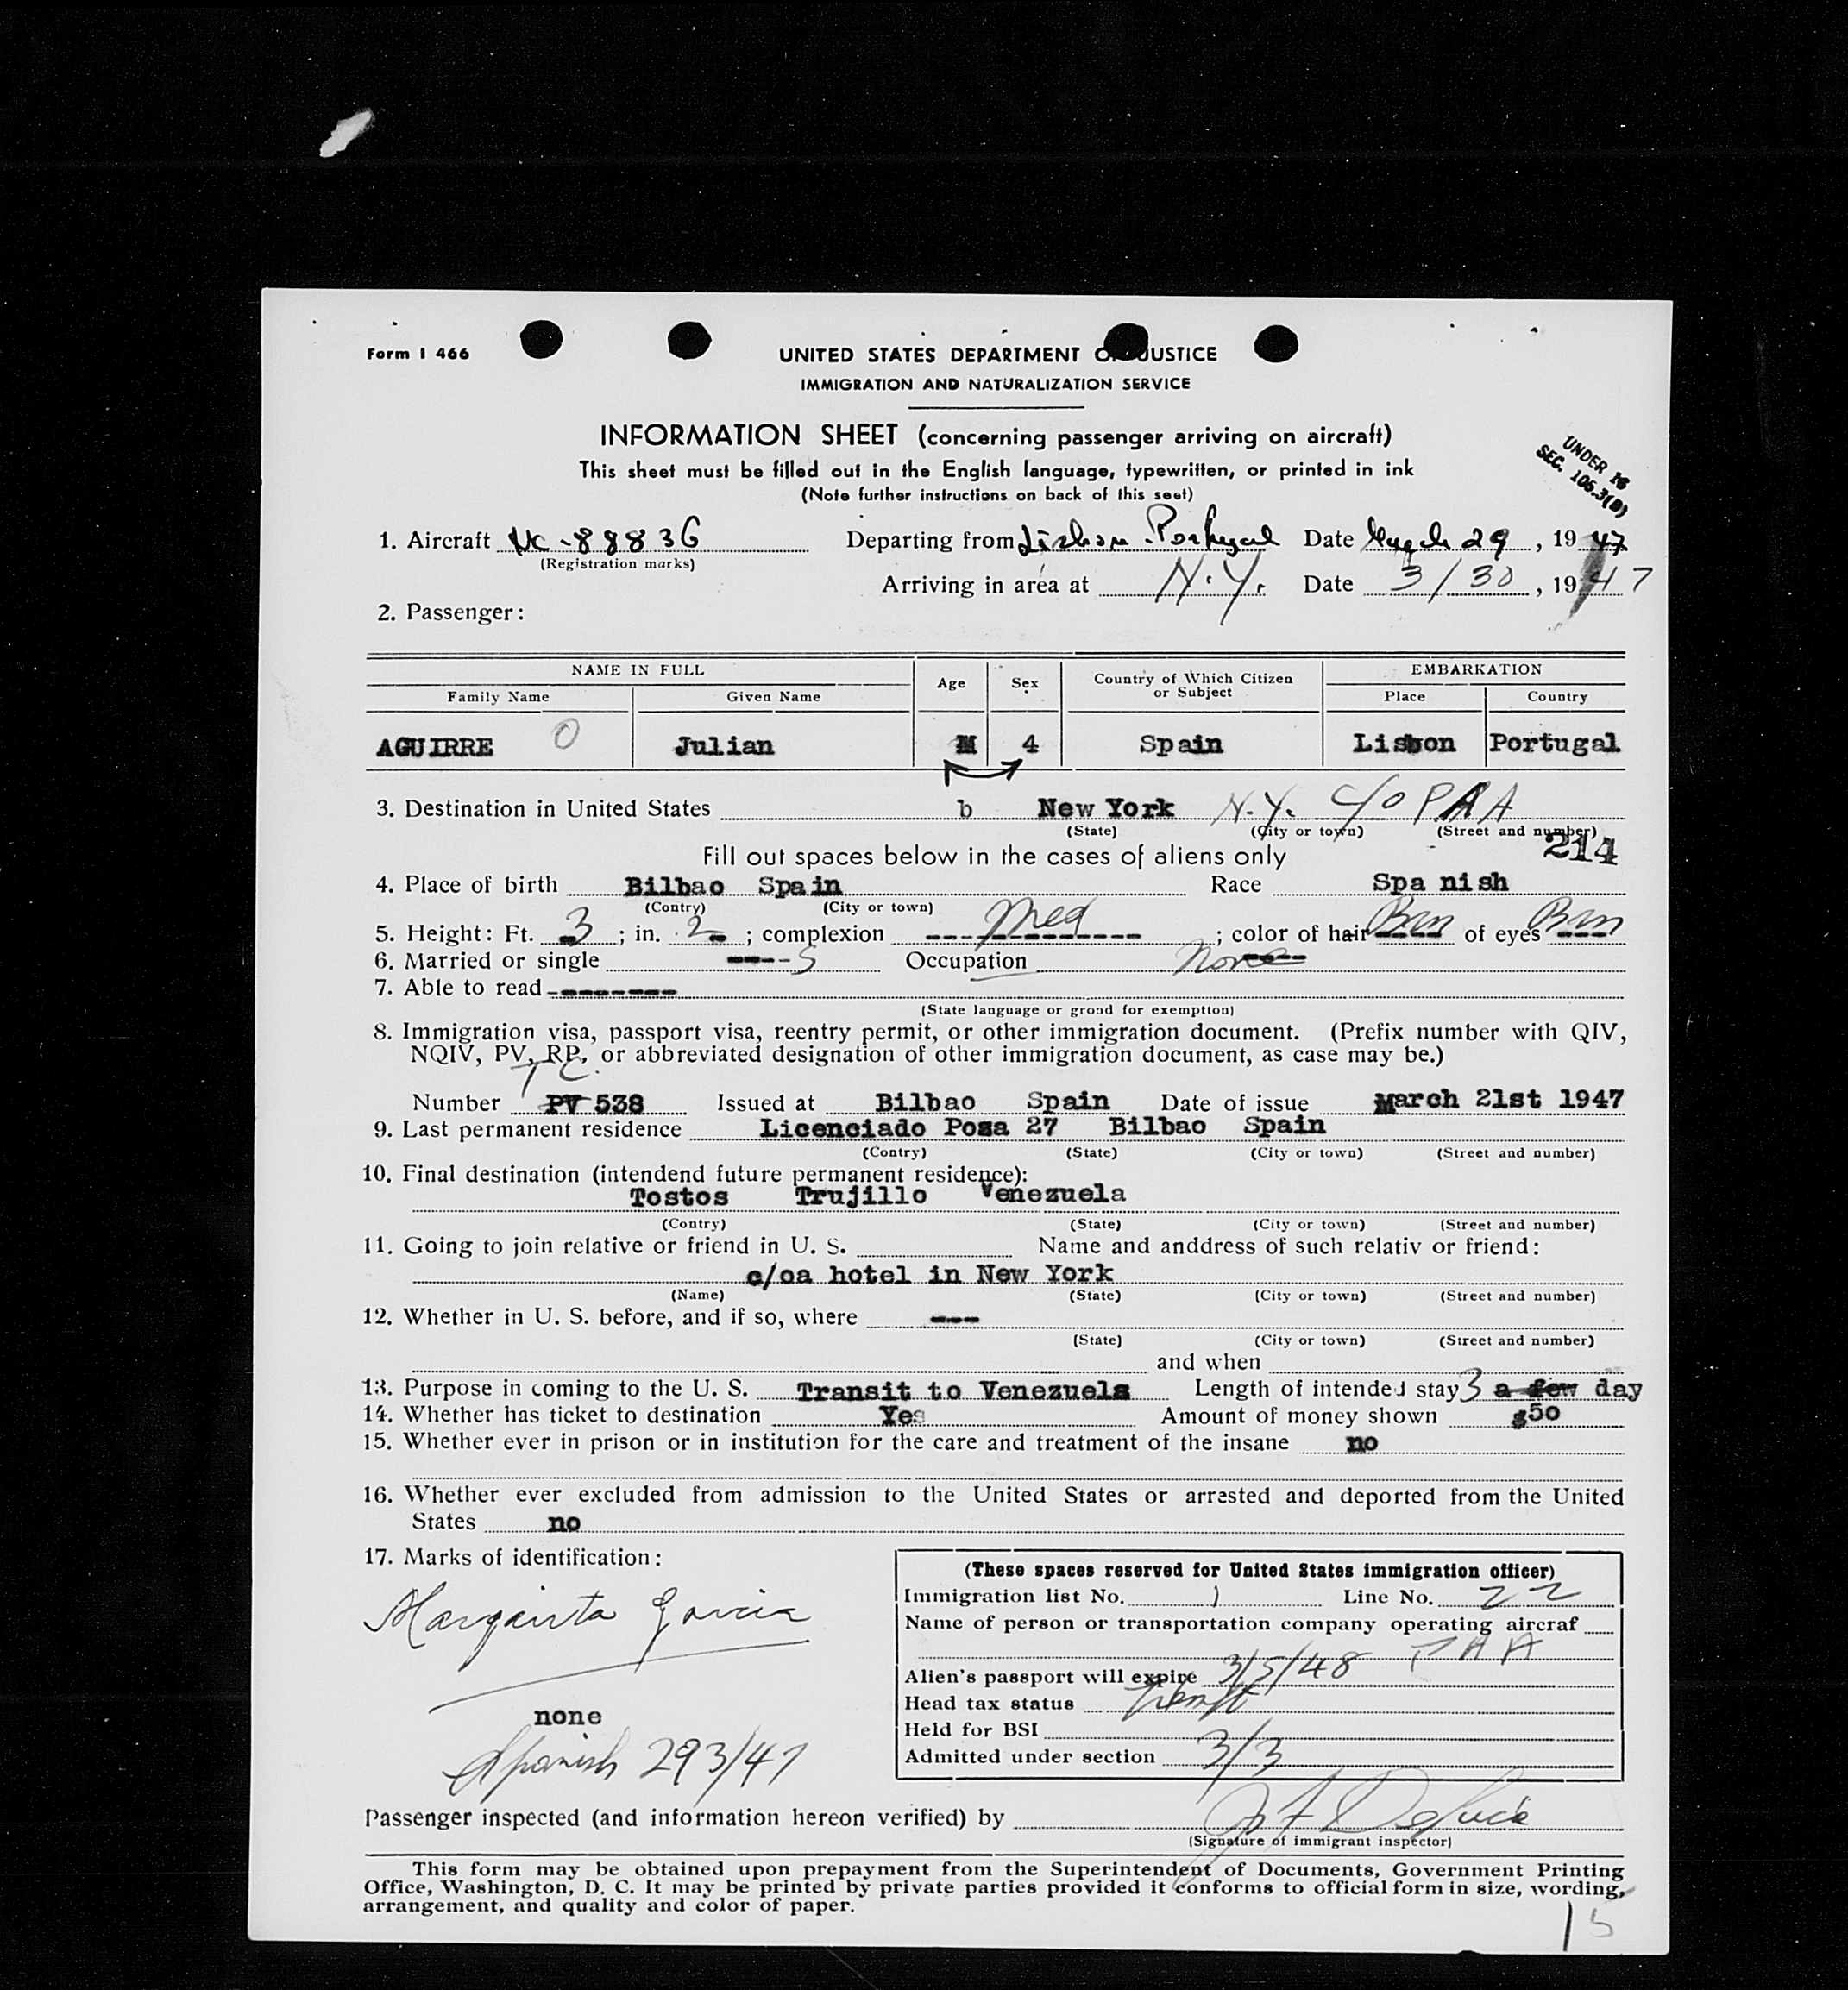 Form I 466
UNITED STATES DEPARTMENT OF JUSTICE
IMMIGRATION AND NATURALIZATION SERVICE
INFORMATION SHEET (concerning passenger arriving on aircraft)
This sheet must be filled out in the English language, typewritten, or printed in ink
(Note further instructions on back of this seet)
UNDER 16
SEC. 106.3(B)
1. Aircraft NC-88836 Departing from Lisbon-Portugal Date March 29, 1947
(Registration marks)
Arriving in area at N.Y. Date 3/30, 1947
2. Passenger:
NAME IN FULL Age Sex Country of Which Citizen or Subject EMBARKATION
Family Name Given Name Place Country
AGUIRRE 0 Julian M 4 Spain Lisbon Portugal
3. Destination in United States b New York N.Y. C/O PAA
(State) (City or town) (Street and number)
214
Fill out spaces below in the cases of aliens only
4. Place of birth Bilbao Spain Race Spa nish
(Contry) (City or town)
5. Height: Ft. 3; in. 2; complexion Med; color of hair Brn of eyes Brn
6. Married or single ----S Occupation None
7. Able to read --------
(State language or groud for exemption)
8. Immigration visa, passport visa, reentry permit, or other immigration document. (Prefix number with QIV,
NQIV, PV, RP, or abbreviated designation of other immigration document, as case may be.)
TC.
Number PV 538 Issued at Bilbao Spain Date of issue March 21st 1947
9. Last permanent residence Licenciado Posa 27 Bilbao Spain
(Contry) (State) (City or town) (Street and number)
10. Final destination (intendend future permanent residence):
Tostos Trujillo Venezuela
(Contry) (State) (City or town) (Street and number)
11. Going to join relative or friend in U. S. Name and anddress of such relativ or friend:
c/oa hotel in New York
(Name) (State) (City or town) (Street and number)
12. Whether in U. S. before, and if so, where ---
(State) (City or town) (Street and number)
and when
13. Purpose in coming to the U. S. Transit to Venezuela Length of intended stay 3 a few day
14. Whether has ticket to destination Yes Amount of money shown $50
15. Whether ever in prison or in institution for the care and treatment of the insane no
16. Whether ever excluded from admission to the United States or arrested and deported from the United
States no
17. Marks of identification:
Margarita Garcia
none
Spanish 293/47
(These spaces reserved for United States immigration officer)
Immigration list No. 1 Line No. 22
Name of person or transportation company operating aircraf
PAA
Alien's passport will expire 3/5/48
Head tax status Transit
Held for BSI
Admitted under section 3/3
Passenger inspected (and information hereon verified) by
(Signature of immigrant inspector)
This form may be obtained upon prepayment from the Superintendent of Documents, Government Printing
Office, Washington, D. C. It may be printed by private parties provided it conforms to official form in size, wording,
arrangement, and quality and color of paper.
15